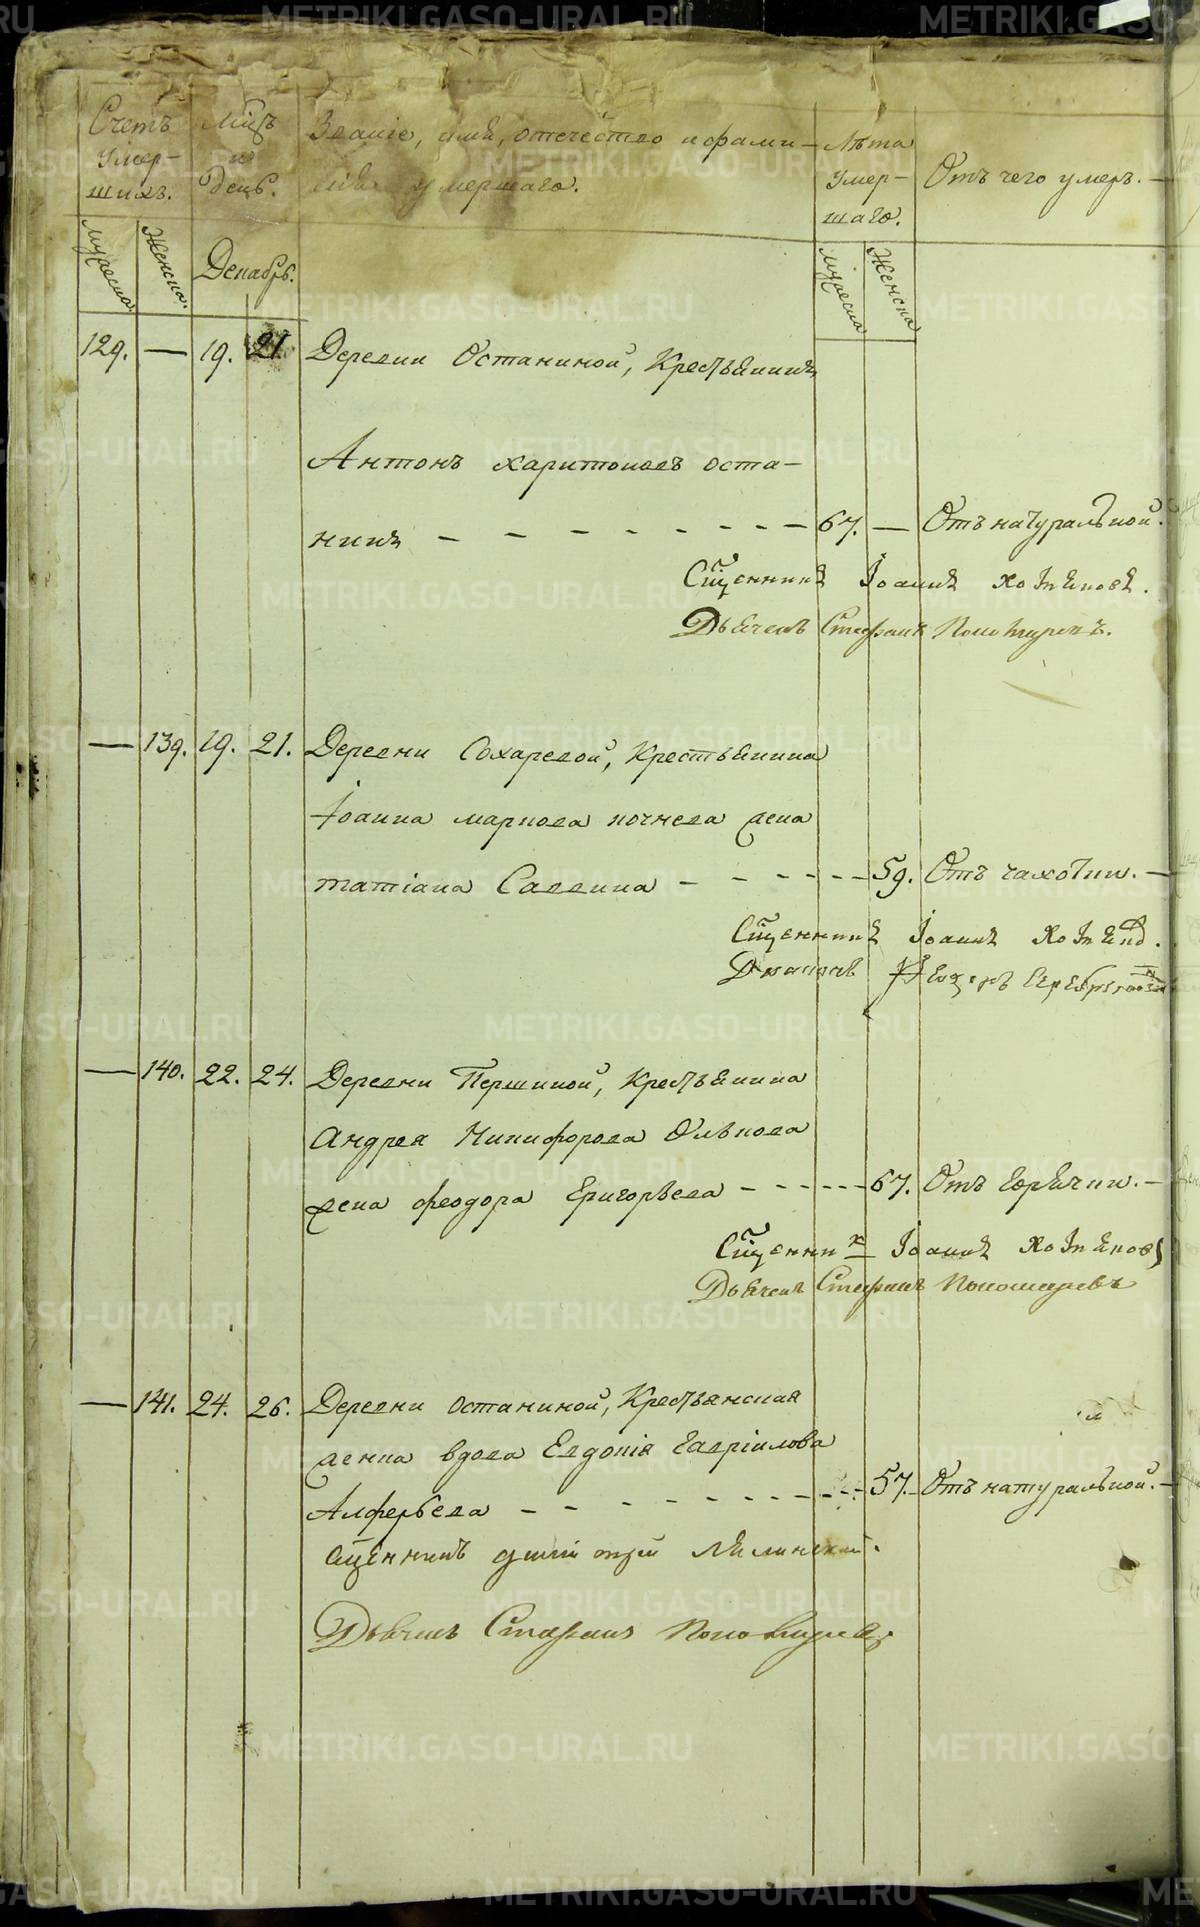 METRIKI.GASO-URAL.RU
Счетъ Умер- шихъ.
Мцъ и день.
Званіе, имя, отечество и фами-
лія умершаго.
Лѣта Умер- шаго.
Отъ чего умеръ.
Мужеска. Женска. Декабрь.
Мужеска Женска
129. — 19. 21. Деревни Останиной, Крестьянинъ
Антонъ Харитоновъ Оста-
нинъ — — — — — — — 67. — Отъ натуральной.
Сщенникъ Іоаннъ Хотяновъ.
Дьячекъ Стефанъ Пономаревъ.
— 139. 19. 21. Деревни Сохаревой, Крестьянина
Іоанна Маркова Кочнева жена
татіана Саввина — — — — — — 59. Отъ чахотки. —
Сщенникъ Іоаннъ Хотяно.
Діаконъ Ѳеодоръ
— 140. 22. 24. Деревни Першиной, Крестьянина
Андрея Никифорова Олькова
жена феодора Григорьева — — — — — 67. Отъ горячки. —
Сщенникъ Іоаннъ Хотяновъ
Дьячекъ Стефанъ Пономаревъ
— 141. 24. 26. Деревни Останиной, Крестьянская
женка вдова Евдокія Гавріилова
Алферьева — — — — — — — — 57. — Отъ натуральной. —
Сщенникъ димитрій
Дьячекъ Стефанъ Пономаревъ